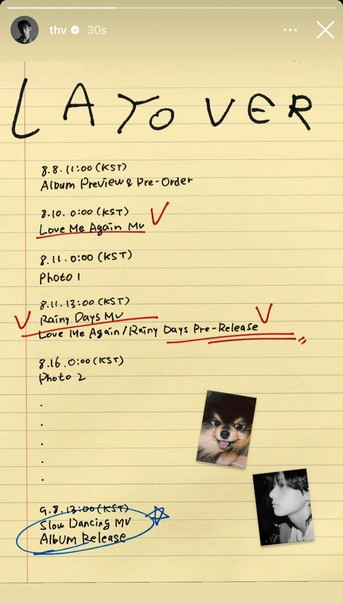 thv 30s
LAYOVER
8.8.11:00(KST)
Album Preview & Pre-Order
8.10. 0:00(KST)
Love Me Again MV
8.11. 0:00(KST)
Photo 1
8.11.13:00(KST)
Rainy Days MV
Love Me Again/Rainy Days Pre-Release
8.16.0:00(KST)
Photo 2
.
.
.
.
.
9.8.13:00(KST)
Slow Dancing MV
Album Release